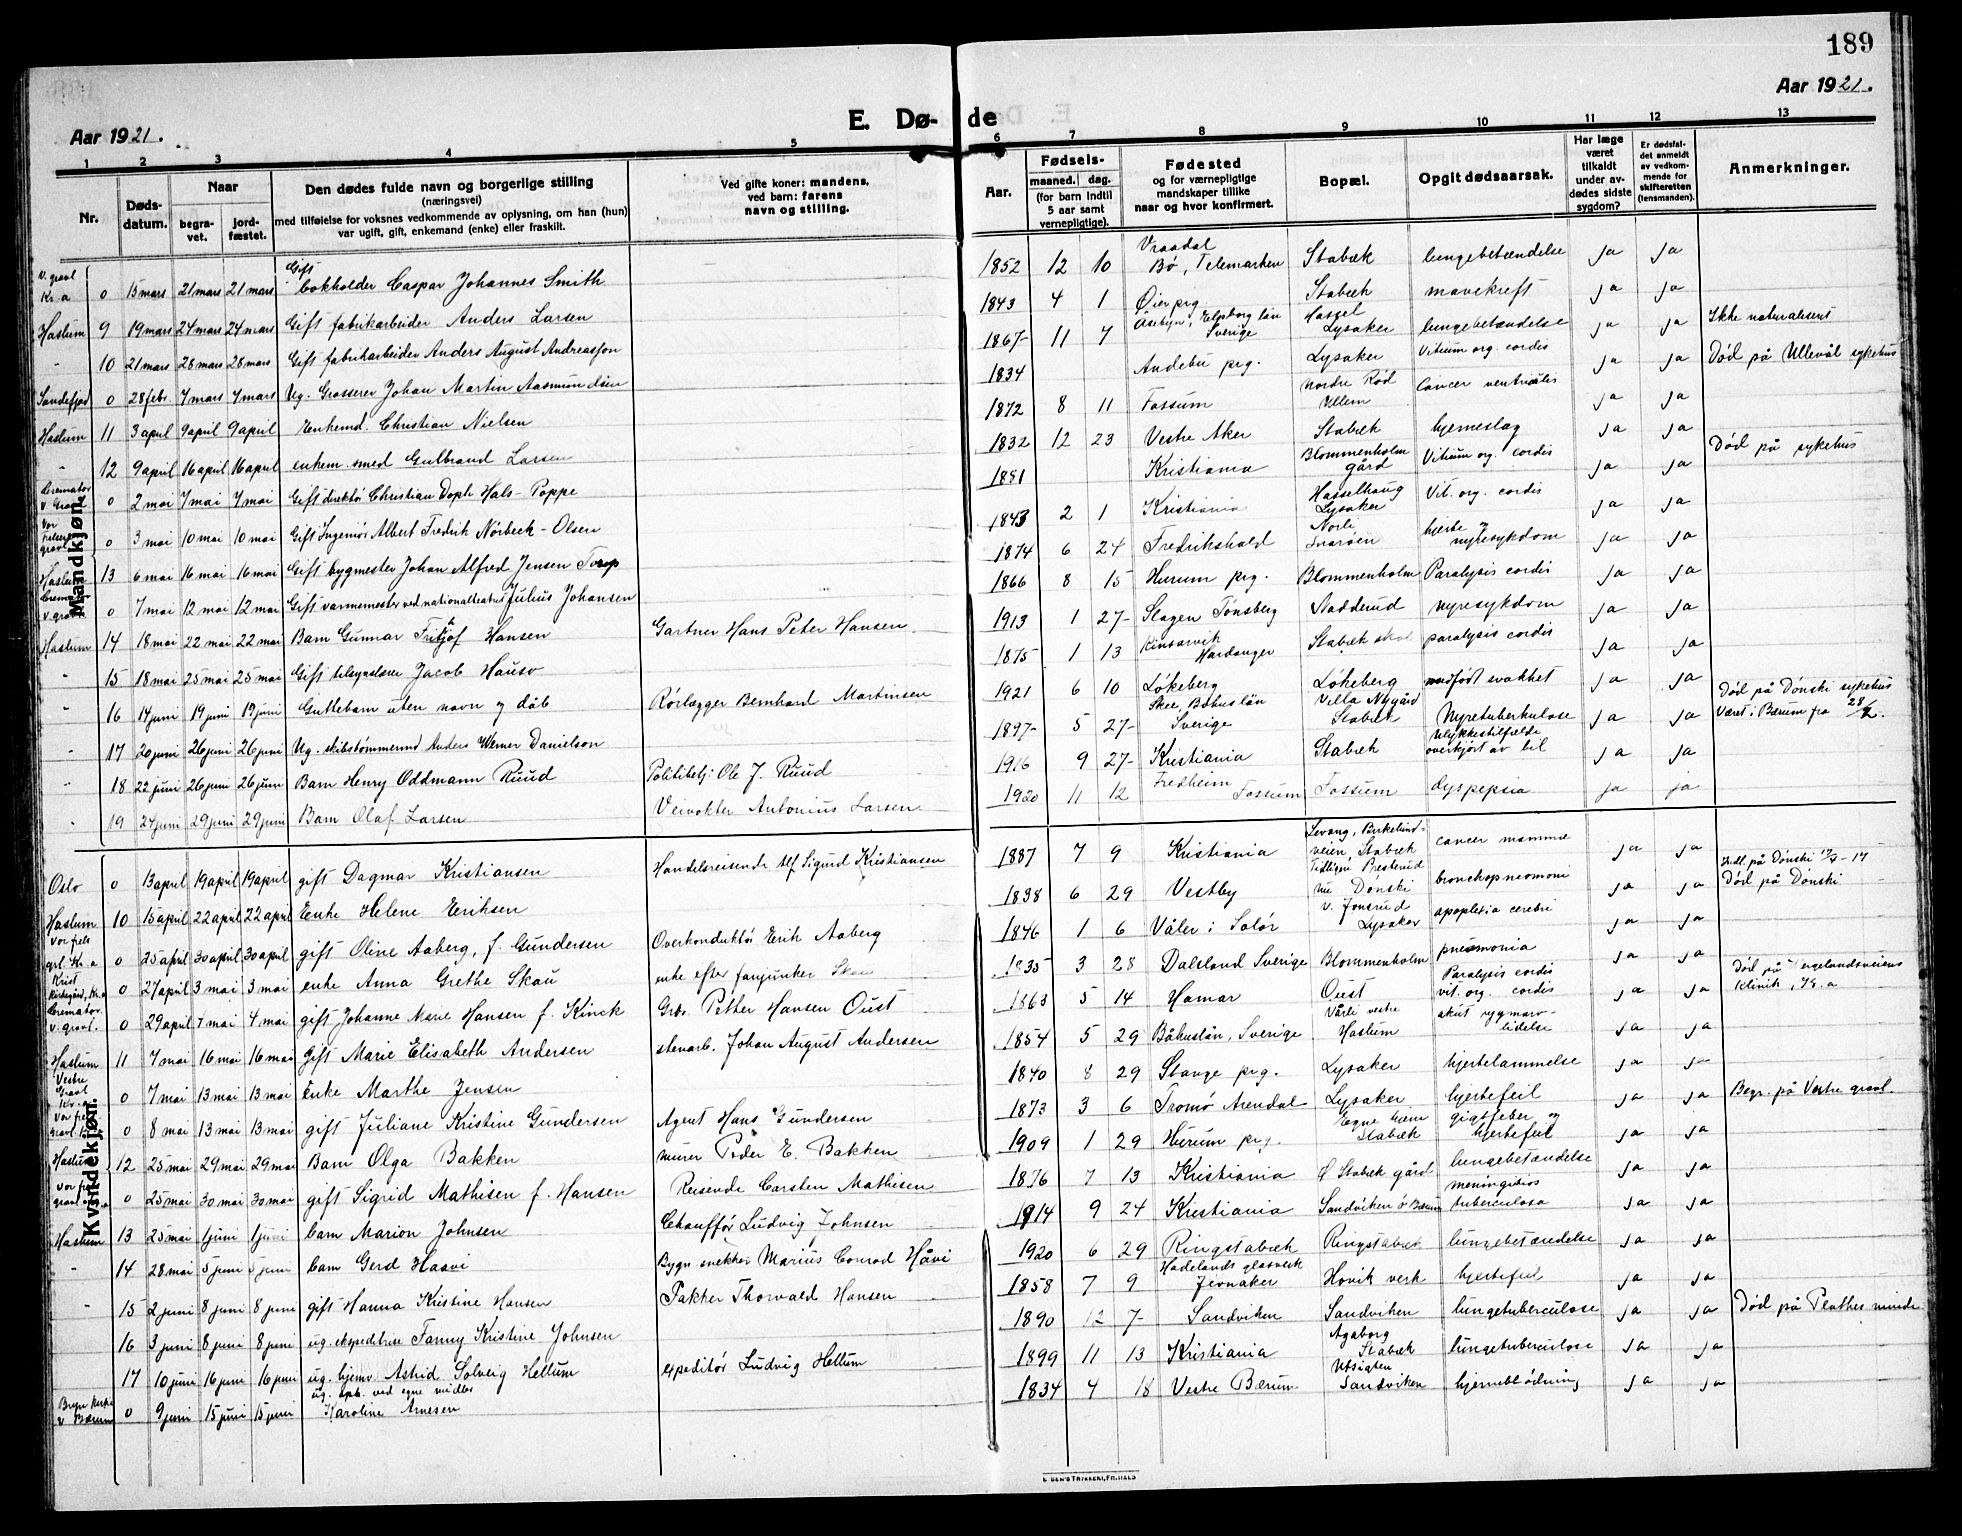 189
Aar 1921.
Aar 1921.
E. Dø- de
1 2 3 4 5 6 7 8 9 10 11 12 13
Nr.
Døds-datum.
Naar
begra-vet.
jord-fæstet.
Den dødes fulde navn og borgerlige stilling
(næringsvei)
med tilføielse for voksnes vedkommende av oplysning, om han (hun)
var ugift, gift, enkemand (enke) eller fraskilt.
Ved gifte koner: mandens,
ved barn: farens
navn og stilling.
Aar.
Fødsels-
maaned. dag.
(for barn indtil
5 aar samt
vernepligtige).
Fødested
og for værnepligtige
mandskaper tillike
naar og hvor konfirmert.
Bopæl.
Opgit dødsaarsak.
Har læge
været
tilkaldt
under av-
dødes sidste
sygdom?
Er dødsfal-
det anmeldt
av vedkom-
mende for
skifteretten
(lensmanden).
Anmerkninger.
Mandkjøn.
V. gravl Kr.a 0 15 mars 21 mars 21 mars Gift bokholder Caspar Johannes Smith 1852 12 10 Vraadal Bø, Telemarken Stabæk lungebetændelse ja ja
Haslum 9 19 mars 24 mars 24 mars Gift fabrikarbeider Anders Larsen 1843 4 1 Øier prg. Stabæk mavekreft ja ja
" 10 21 mars 28 mars 28 mars Gift fabrikarbeider Anders August Andreasson 1867 11 4 Åsebyn, Elfsborg län Sverige Lysaker lungebetændelse ja ja Ikke naturalisert
Sandefjord 0 28 febr. 7 mars 7 mars Ug. Grosserer Johan Martin Aasmundsen 1834 Andebu prg. Lysaker Vitium org. cordis ja ja Død på Ullevål sykehus
Haslum 11 3 april 9 april 9 april Enkemd. Christian Nielsen 1872 8 11 Fossum nordre Rød Ullern Cancer ventriculis ja ja
" 12 9 april 16 april 16 april enkem. smed Gulbrand Larsen 1832 12 23 Vestre Aker Stabæk hjerneslag ja ja
Cremator. v. Gravl. 0 2 mai 7 mai 7 mai Gift direktør Christian Doph Hals-Poppe 1881 Kristiania Blommenholm gård Vitium org. cordis ja ja Død på sykehus
Vor Frelsers gravl. 0 3 mai 10 mai 10 mai Gift Ingeniør Albert Fredrik Nørbeck-Olsen 1843 2 1 Kristiania Hasselhaug Lysaker Vit. org. cordis ja ja
Haslum 13 6 mai 16 mai 16 mai Gift bygmester Johan Alfred Jensen Torp 1874 6 24 Fredrikshald Norli Snarøen hjerte nyresykdom ja ja
Cremator. v. gravl. 0 7 mai 12 mai 12 mai Gift varmemester ved nationalteatret Julius Johansen 1866 8 15 Hurum prg. Blommenholm Paralysis cordis ja ja
Haslum 14 18 mai 22 mai 22 mai Barn Gunnar Fritjof Hansen Gartner Hans Peter Hansen 1913 1 27 Slagen Tønsberg Nadderud nyresykdom ja ja
" 15 18 mai 25 mai 25 mai Gift tilsynslærer Jacob Hauso 1875 1 13 Kinsarvik Hardanger Stabæk skol paralysis cordis ja ja
" 16 14 juni 19 juni 19 juni Guttebarn uten navn og dåb Rørlægger Bernhard Martinsen 1921 6 10 Løkeberg Løkeberg medfødt svakhet ja ja
" 17 20 juni 26 juni 26 juni Ug. skibstømmermd Anders Werner Danielson 1897 5 27 Skee, Båhuslän Sverige Villa Nygård Stabæk Nyretuberkulose ja ja Død på Dønski sykehus Været i Bærum fra 28/2.
" 18 22 juni 26 juni 26 juni Barn Henry Oddmann Ruud Politibetj. Ole J. Ruud 1916 9 27 Kristiania Stabæk ulykkestilfælde overkjørt av bil ja ja
" 19 24 juni 29 juni 29 juni Barn Olaf Larsen Veivokter Antonius Larsen 1920 11 12 Fredheim Fossum Fossum dyspepsia ja ja
Kvindekjøn.
Oslo 0 13 april 19 april 19 april gift Dagmar Kristiansen Handelsreisende Alf Sigurd Kristiansen 1887 7 9 Kristiania Levang, Birkelundveien, Stabæk cancer mammæ ja ja
Haslum 10 15 april 22 april 22 april Enke Helene Eriksen 1838 6 29 Vestby Tidligere Presterud nu Dønski bronchopneomoni ja ja Indl. på Dønski Død på Dønski
Vor frels grl. Kr.a 0 25 april 30 april 30 april gift Oline Aaberg, f. Gundersen Overkonduktør Erik Aaberg 1846 1 6 Våler i Solør v. Jonsrud Lysaker apoplexia cerebri ja ja
Krist kirkegård, Kr.a 0 27 april 3 mai 3 mai enke Anna Grethe Skau enke efter fanjunker Skau 1835 3 28 Dalsland Sverige Blommenholm pneumonia ja ja
Cremator. v. gravl. 0 29 april 4 mai 4 mai gift Johanne Marie Hansen f. Kinck Grbr. Petter Hansen Oust 1863 5 14 Hamar Oust Paralysis cordis vit. org. cordis ja ja Død på klinik, Kr.a
Haslum 11 7 mai 16 mai 16 mai Gift Marie Elisabeth Andersen stenarb. Johan August Andersen 1854 5 29 Båhuslän, Sverige Vårli vestre Haslum akut rygmarvlidelse ja ja
Vestre Gravl Kr.a 0 7 mai 13 mai 13 mai Enke Marthe Jensen 1840 8 29 Stange prg. Lysaker hjertelammelse ja ja
Vor frels Gravl. 0 8 mai 13 mai 13 mai gift Juliane Kristine Gundersen Agent Hans Gundersen 1873 3 6 Tromø Arendal Lysaker hjertefeil ja ja Begr. på Vestre gravl.
Haslum 12 25 mai 29 mai 29 mai Barn Olga Bakken murer Peder E. Bakken 1909 1 29 Hurum prg. Egne hjem Stabæk gigtfeber og hjertefeil ja ja
Vor frels gravl. 0 25 mai 30 mai 30 mai gift Sigrid Mathisen f. Hansen Reisende Carsten Mathisen 1876 7 13 Kristiania Ø Stabæk gård lungebetændelse ja ja
Haslum 13 25 mai 1 juni 1 juni barn Marion Johnsen Chauffør Ludvig Johnsen 1914 9 24 Kristiania Sandviken Ø Bærum meningitis tuberculosa ja ja
" 14 28 mai 5 juni 5 juni barn Gerd Haavi Bygn. snekker Marius Conrad Håvi 1920 6 29 Ringstabæk Ringstabæk lungebetændelse ja ja
" 15 2 juni 8 juni 8 juni gift Hanna Kristine Hansen Pakker Thorvald Hansen 1858 7 9 Hadelands glasverk Jevnaker Høvik verk hjertefeil ja ja
16 3 juni 8 juni 8 juni ug. ekspeditrise Fanny Kristine Johnsen 1890 12 7 Sandviken Sandviken lungetuberculose ja ja Død på Plathes minde
17 10 juni 16 juni 16 juni ug. hjemv. Astrid Solveig Hellum expeditør Ludvig Hellum 1899 11 13 Kristiania Agaborg Stabæk lungetuberculose ja ja
Bryn kirke v Bærum 0 9 juni 15 juni 15 juni ug. ved egne midler Karoline Arnesen 1834 4 18 Vestre Bærum Utsigten Sandviken hjerneblødning ja ja